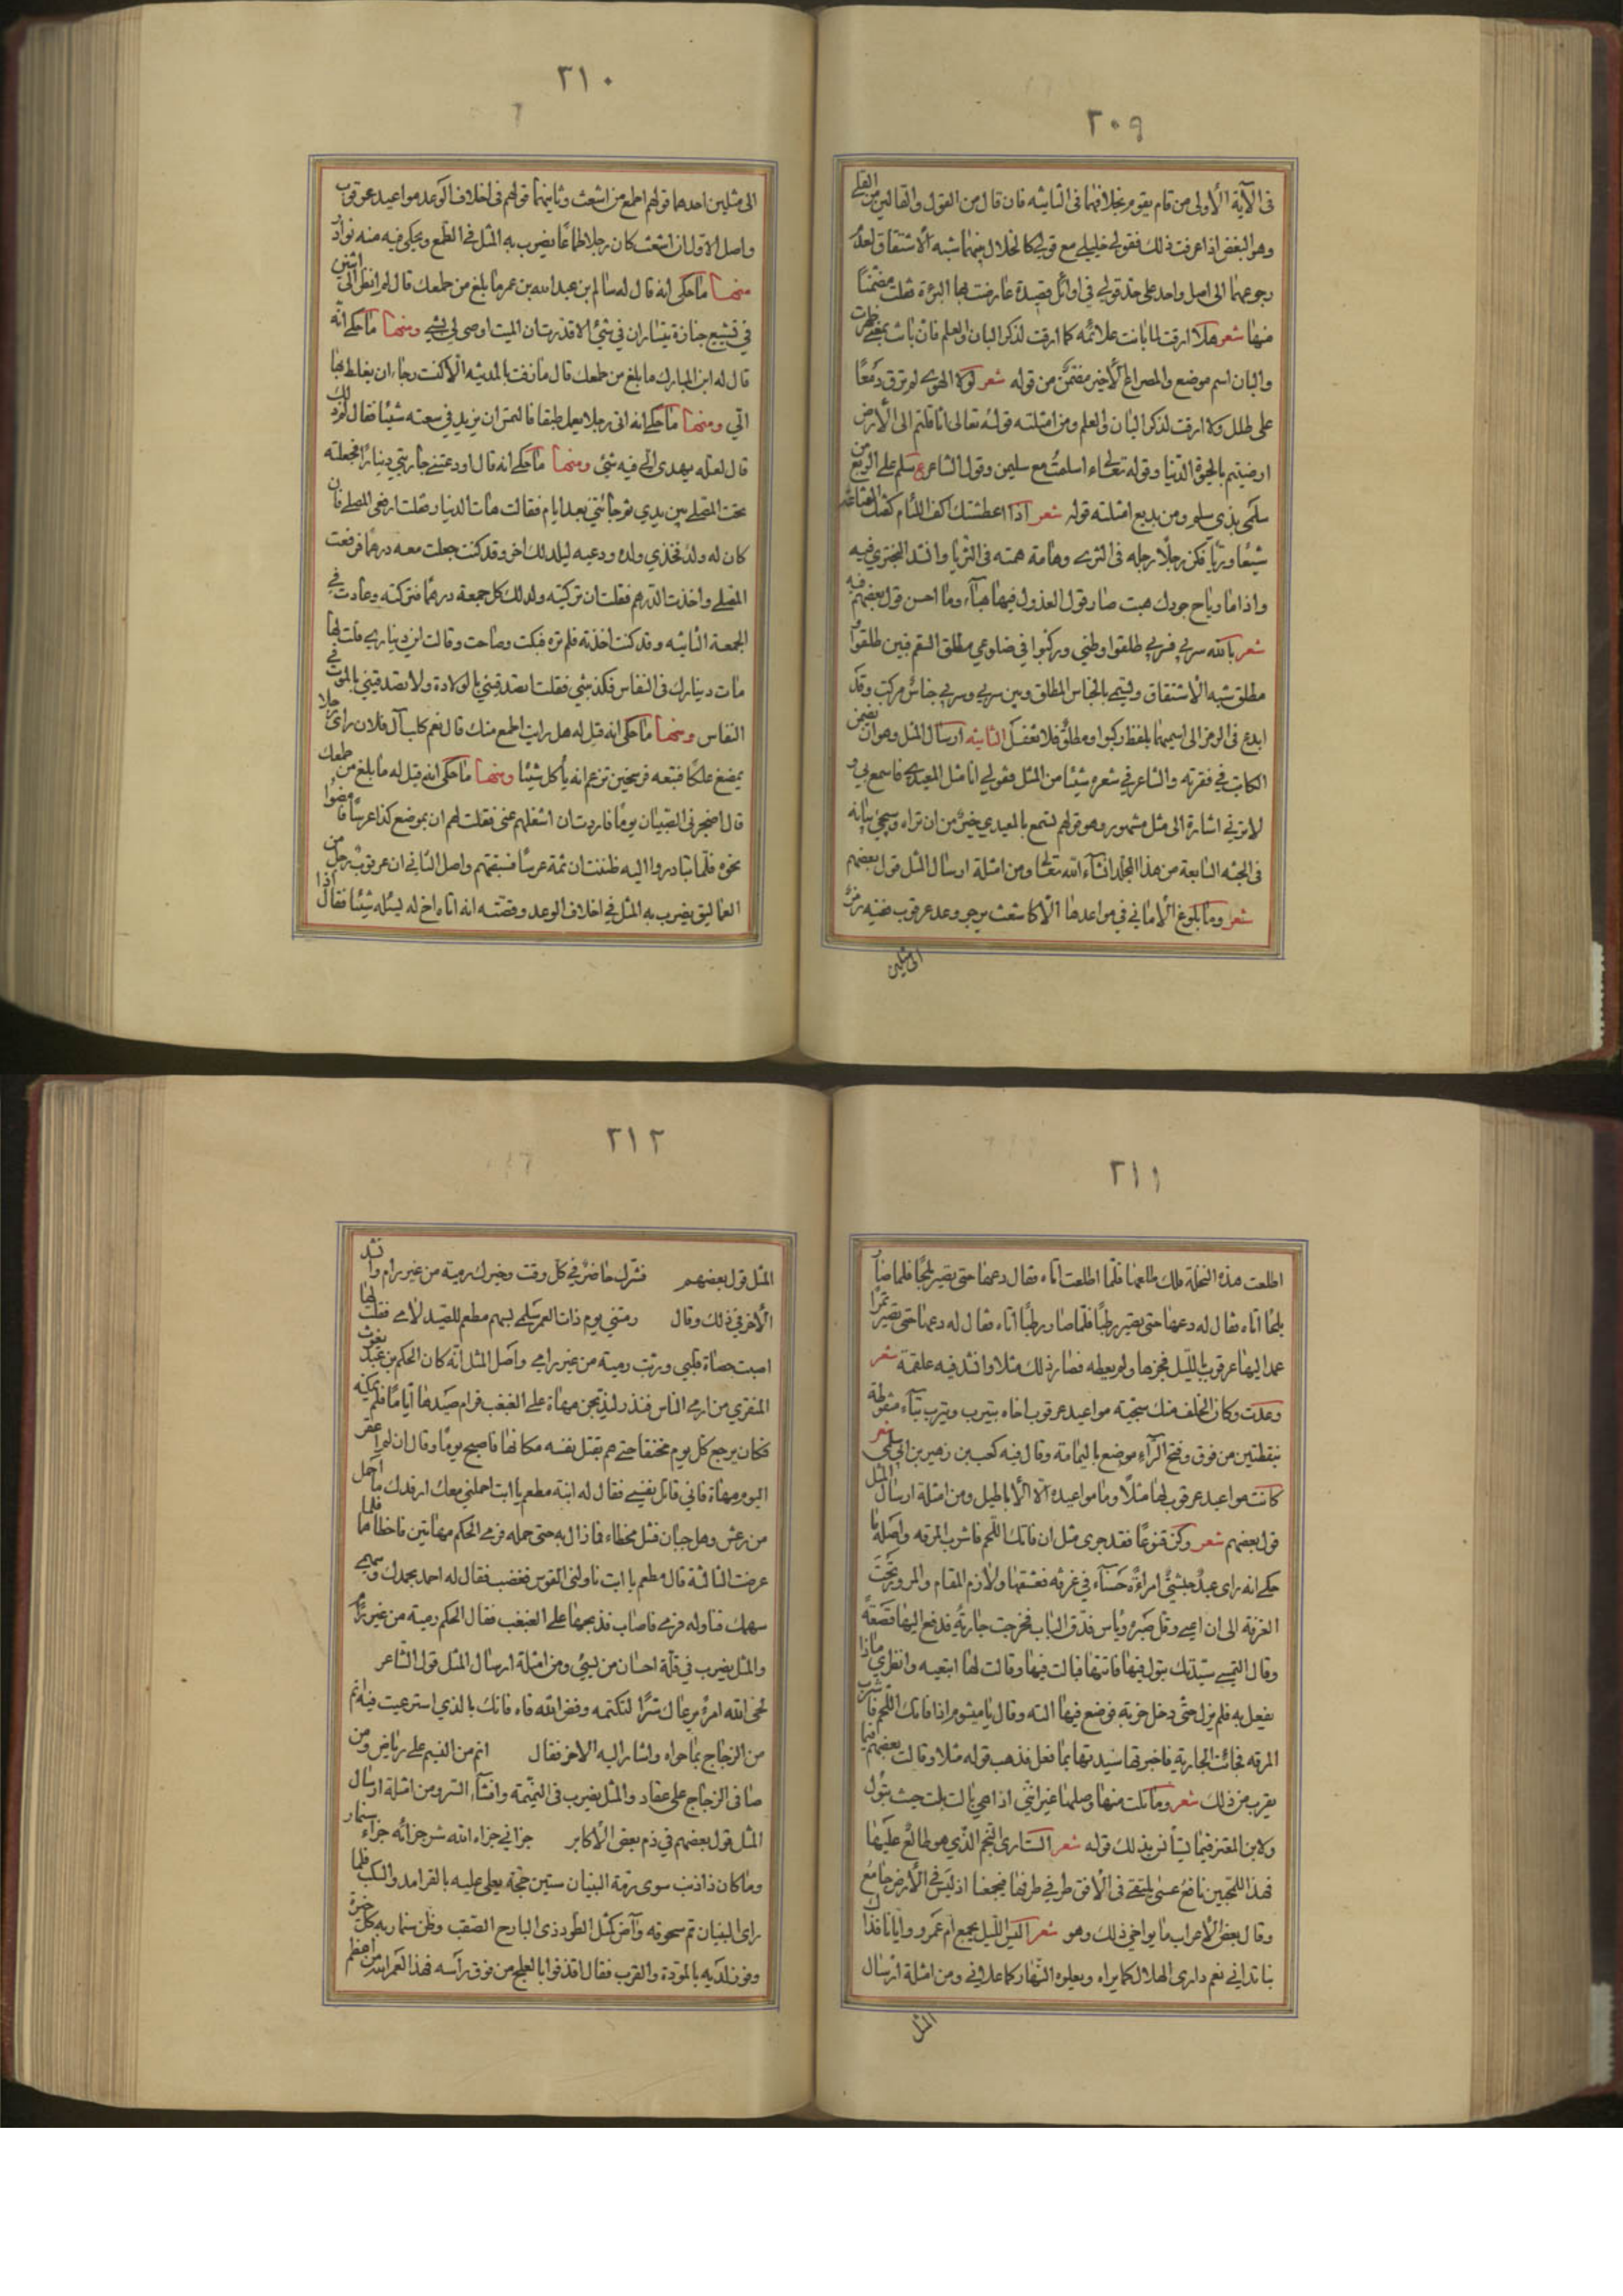 ٢٠٩
فى الآية الأولى من قام يقوم بخلافهما فى الثانيه فان قال من القول والقالين من القلى
وهو البغض اذا عرفت ذلك فقولى خليلى مع قولى كالخلال بينهما شبه الاشتقاق لعدم
رجوعهما الى اصل واحد على حد قولى فى اوائل قصيدة عارضت بها البرءة فقلت مضمنا
منها شعر هلا ارقت لما بانت علائمه كما ارقت لذكر البان والعلم فان باتت بمعنى ظهرت
والبان اسم موضع والمصراع الاخير مضمن من قوله شعر لولا الهوى لم ترق دمعا
على طلل ولا ارقت لذكر البان والعلم ومن امثلته قوله تعالى اثاقلتم الى الأرض
ارضيتم بالحيوة الدنيا وقوله تعالى اسلمت مع سليمن وقول الشاعر ع سلم على الربع من
سلمى بذى سلم ومن بديع امثلته قوله شعر اذا اعطشتك اكف اللئام كفتك القناعة
شبعا وريا فكن رجلا رجله فى الثرى وهامة همته فى الثريا وانشد البحترى فيه
واذا ما رياح جودك هبت صار قول العذول فيها هباء وما احسن قول بعضهم فيه
شعر بالله سربى فسربى طلقوا وطنى وركبوا فى ضلوعى مطلق السقم فبين طلقوا و
مطلق شبه الاشتقاق ويسمى بالجناس المطلق وبين سربى وسربى جناس مركب وقد
ابدع فى الرمز الى اسميهما بلفظ ركبوا ومطلق فلا تغفل الثانيه ارسال المثل وهو ان يضمن
الكاتب فى فقرته والشاعر فى شعره شيئا من المثل فقولى انا مثل المعيدى فاسمع بى و
لا ترنى اشارة الى مثل مشهور وهو قولهم تسمع بالمعيدى خير من ان تراه وسيجئ بيانه
فى الجنه السابعة من هذا المجلد انشاء الله تعالى ومن امثلة ارسال المثل قول بعضهم
شعر وما بلوغ الامانى فى مواعدها الا كاشعث يرجو وعد عرقوب ضمنه رمز
الى مثلين
٢١٠
الى مثلين احدهما قولهم اطمع من اشعث وثانيهما قولهم فى اخلاف الوعد مواعيد عرقوب
واصل الاول ان اشعث كان رجلا طماعا يضرب به المثل فى الطمع ويحكى فيه منه نوادر
منها ما حكى انه قال له سالم بن عبدالله بن عمر ما بلغ من طمعك قال لم انظر الى اثنين
فى تشييع جنازة يتساران فى شئ الا قدرت ان الميت اوصى لى بشئ ومنها ما حكى انه
قال له ابن المبارك ما بلغ من طمعك قال ما زفت بالمدينه الا كنست رجاء ان يغلط بها
الى ومنها ما حكى انه اتى رجلا يعمل طبقا فالتمس ان يزيد فى سعته شيئا فقال لم ذلك
قال لعله يهدى الى فيه شئ ومنها ما حكى انه قال اودعتنى جاريتى دينارا فجعلته
تحت المصلى بين يدى ثم جائتنى بعد ايام فقالت هات الدينار فقلت ارفعى المصلى فان
كان له ولد فخذى ولده ودعيه ليلد لك اخر وقد كنت جعلت معه درهما فرفعت
المصلى واخذت الدرهم فقلت ان تركتيه ولد لك كل جمعة درهما فتركته وعادت فى
الجمعة الثانيه وقد كنت اخذته فلم تره فبكت وصاحت وقالت اين دينارى قلت لها
مات دينارك فى النفاس فكذبتنى فقلت تصدقينى بالولادة ولا تصدقينى بالموت فى
النفاس ومنها ما حكى انه قيل له هل رايت اطمع منك قال نعم كلب آل فلان راى رجلا
يمضغ علكا فتبعه فرسخين تزعم انه يأكل شيئا ومنها ما حكى انه قيل له ما بلغ من طمعك
قال اضجرنى الصبيان يوما فاردت ان اشغلهم عنى فقلت لهم ان بموضع كذا عرسا فامضوا
نحوه فلما تبادروا اليه ظننت ان ثمة عرسا فسبقتهم واصل الثانى ان عرقوب رجل من
العماليق يضرب به المثل فى اخلاف الوعد وقصته انه اتاه اخ له يسئله شيئا فقال اذا
٢١١
اطلعت هذه النخلة فلك طلعها فلما اطلعت اتاه فقال دعها حتى يصير بلحا فلما صار
بلحا اتاه فقال له دعها حتى يصير رطبا فلما صار رطبا اتاه فقال له دعها حتى يصير تمرا
عمد اليها عرقوب بالليل فجزها ولم يعطه فصار ذلك مثلا وانشد فيه علقمة شعر
وعدت وكان الخلف منك سجية مواعيد عرقوب اخاه بيترب ويترب بتاء منقوطة
بنقطتين من فوق وفتح الراء موضع باليمامة وقال فيه كعب بن زهير بن ابى سلمى شعر
كانت مواعيد عرقوب لها مثلا وما مواعيده الا الأباطيل ومن امثلة ارسال المثل
قول بعضهم شعر وكن قنوعا فقد جرى مثل ان فاتك اللحم فاشرب المرقه واصله ما
حكى انه راى عبد حبشى امراة حسناء فى غرفة فعشقها ولازم المقام والمرور تحت
الغرفة الى ان اعيى وقل صبره ويأس فدق الباب فخرجت جارية فدفع اليها قصعة
وقال التمسى سيدتك تبول فيها فاتتها فبالت فيها وقالت لها اتبعيه وانظرى ماذا
يفعل به فلم يزل حتى دخل خربة فوضع فيها الته وقال يا ميشوم اذا فاتك اللحم فاشرب
المرقه فجائت الجارية فاخبرتها سيدتها بما فعل فذهب قوله مثلا وقالت بعضهم فيما
يقرب من ذلك شعر وما نلت منها وصلها غير اننى اذا هى بالت بلت حيث تبول
ولابن المعتز فيما يستأنس بذلك قوله شعر الست ارى النجم الذى هو طالع عليها
فهذا للمحبين نافع عسى يلتقى فى الافق طرفى طرفها فيجمعنا اذ ليس فى الأرض جامع
وقال بعض الاعراب ما يواخى ذلك وهو شعر اليس الليل يجمع ام عمرو وايانا فذاك
بنا تدانى نعم وارى الهلال كما يراه ويعلوه النهار كما علانى ومن امثلة ارسال
المثل
٢١٢
المثل قول بعضهم فشرك حاضر فى كل وقت وخيرك رمية من غير رام وانشد
الآخر فى ذلك وقال رمتنى يوم ذات الغمر سلمى بسهم مطعم للصيد لامى فقلت لها
اصبت حصاة قلبى وربت رمية من غير رامى واصل المثل انه كان الحكم بن عبد يغوث
المنقرى من ارمى الناس فنذر ليذبحن مهاة على الغبغب فرام صيدها اياما فلم يمكنه
فكان يرجع كل يوم مخفقا حتى هم بقتل نفسه مكانها فاصبح يوما وقال ان لم اعقر
اليوم مهاة فانى قاتل نفسى فقال له ابنه مطعم يا ابت احملنى معك ارفدك ما احمل
من رعش وهل جبان فشل مخطاء فما زال به حتى حمله فرمى الحكم مهاتين فاخطاهما فلما
عرضت الثالثة قال مطعم يا ابت ناولنى القوس فغضب فقال له احمد بحمدك وسمى
سهمك فناوله فرمى فاصاب فذبحها على الغبغب فقال الحكم رمية من غير رام
والمثل يضرب فى قلة احسان من يسئ ومن امثلة ارسال المثل قول الشاعر
لحى الله امرء يرعاك سرا لتكتمه وفض الله فاه فانك بالذى استرعيت فيه انم
من الزجاج بما حواه واشار اليه الاخر فقال انم من النسيم على رياض ومن
صافى الزجاج على عقار والمثل يضرب فى النميمة وافشاء السر ومن امثلة ارسال
المثل قول بعضهم فى ذم بعض الأكابر جزانى جزاء الله شر جزائه جزاء سنمار
وما كان ذا ذنب سوى رمة البنيان ستين حجة يعلى عليه بالقرامد والسكب فلما
راى البنيان تم سحوقه وآض كمثل الطود ذى البارح الصعب وظن سنمار به كل حبرة
وفوز لديه بالمودة والقرب فقال اقذفوا بالعلج من فوق رأسه فهذا لعمر الله من اعظم